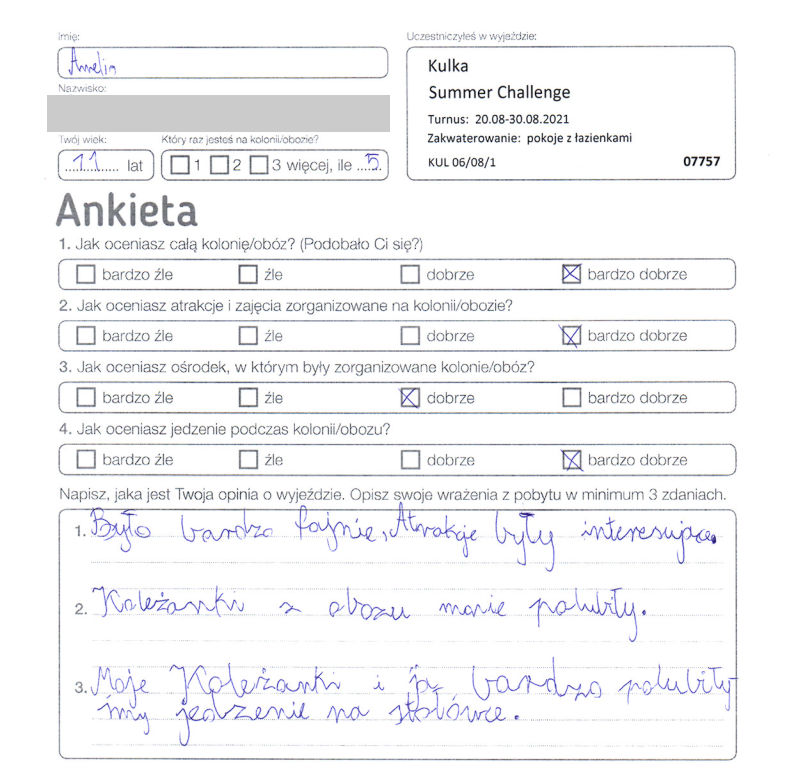 Imię:
Amelia
Nazwisko:
Twój wiek:
Który raz jesteś na kolonii/obozie?
11 lat
1 2 3 więcej, ile 5.
Uczestniczyłeś w wyjeździe:
Kulka
Summer Challenge
Turnus: 20.08-30.08.2021
Zakwaterowanie: pokoje z łazienkami
KUL 06/08/1 07757
Ankieta
1. Jak oceniasz całą kolonię/obóz? (Podobało Ci się?)
bardzo źle źle dobrze bardzo dobrze
2. Jak oceniasz atrakcje i zajęcia zorganizowane na kolonii/obozie?
bardzo źle źle dobrze bardzo dobrze
3. Jak oceniasz ośrodek, w którym były zorganizowane kolonie/obóz?
bardzo źle źle dobrze bardzo dobrze
4. Jak oceniasz jedzenie podczas kolonii/obozu?
bardzo źle źle dobrze bardzo dobrze
Napisz, jaka jest Twoja opinia o wyjeździe. Opisz swoje wrażenia z pobytu w minimum 3 zdaniach.
1. Było bardzo fajnie, Atrakcje były interesujące.
2. Koleżanki z obozu mnie polubiły.
3. Moje Koleżanki i ja bardzo polubiły
śmy jedzenie na stołówce.